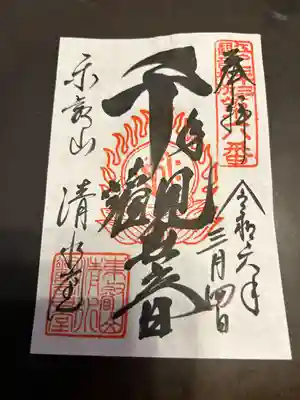 奉拝
令和六年
三月四日
千手観世音
東叡山
清水堂